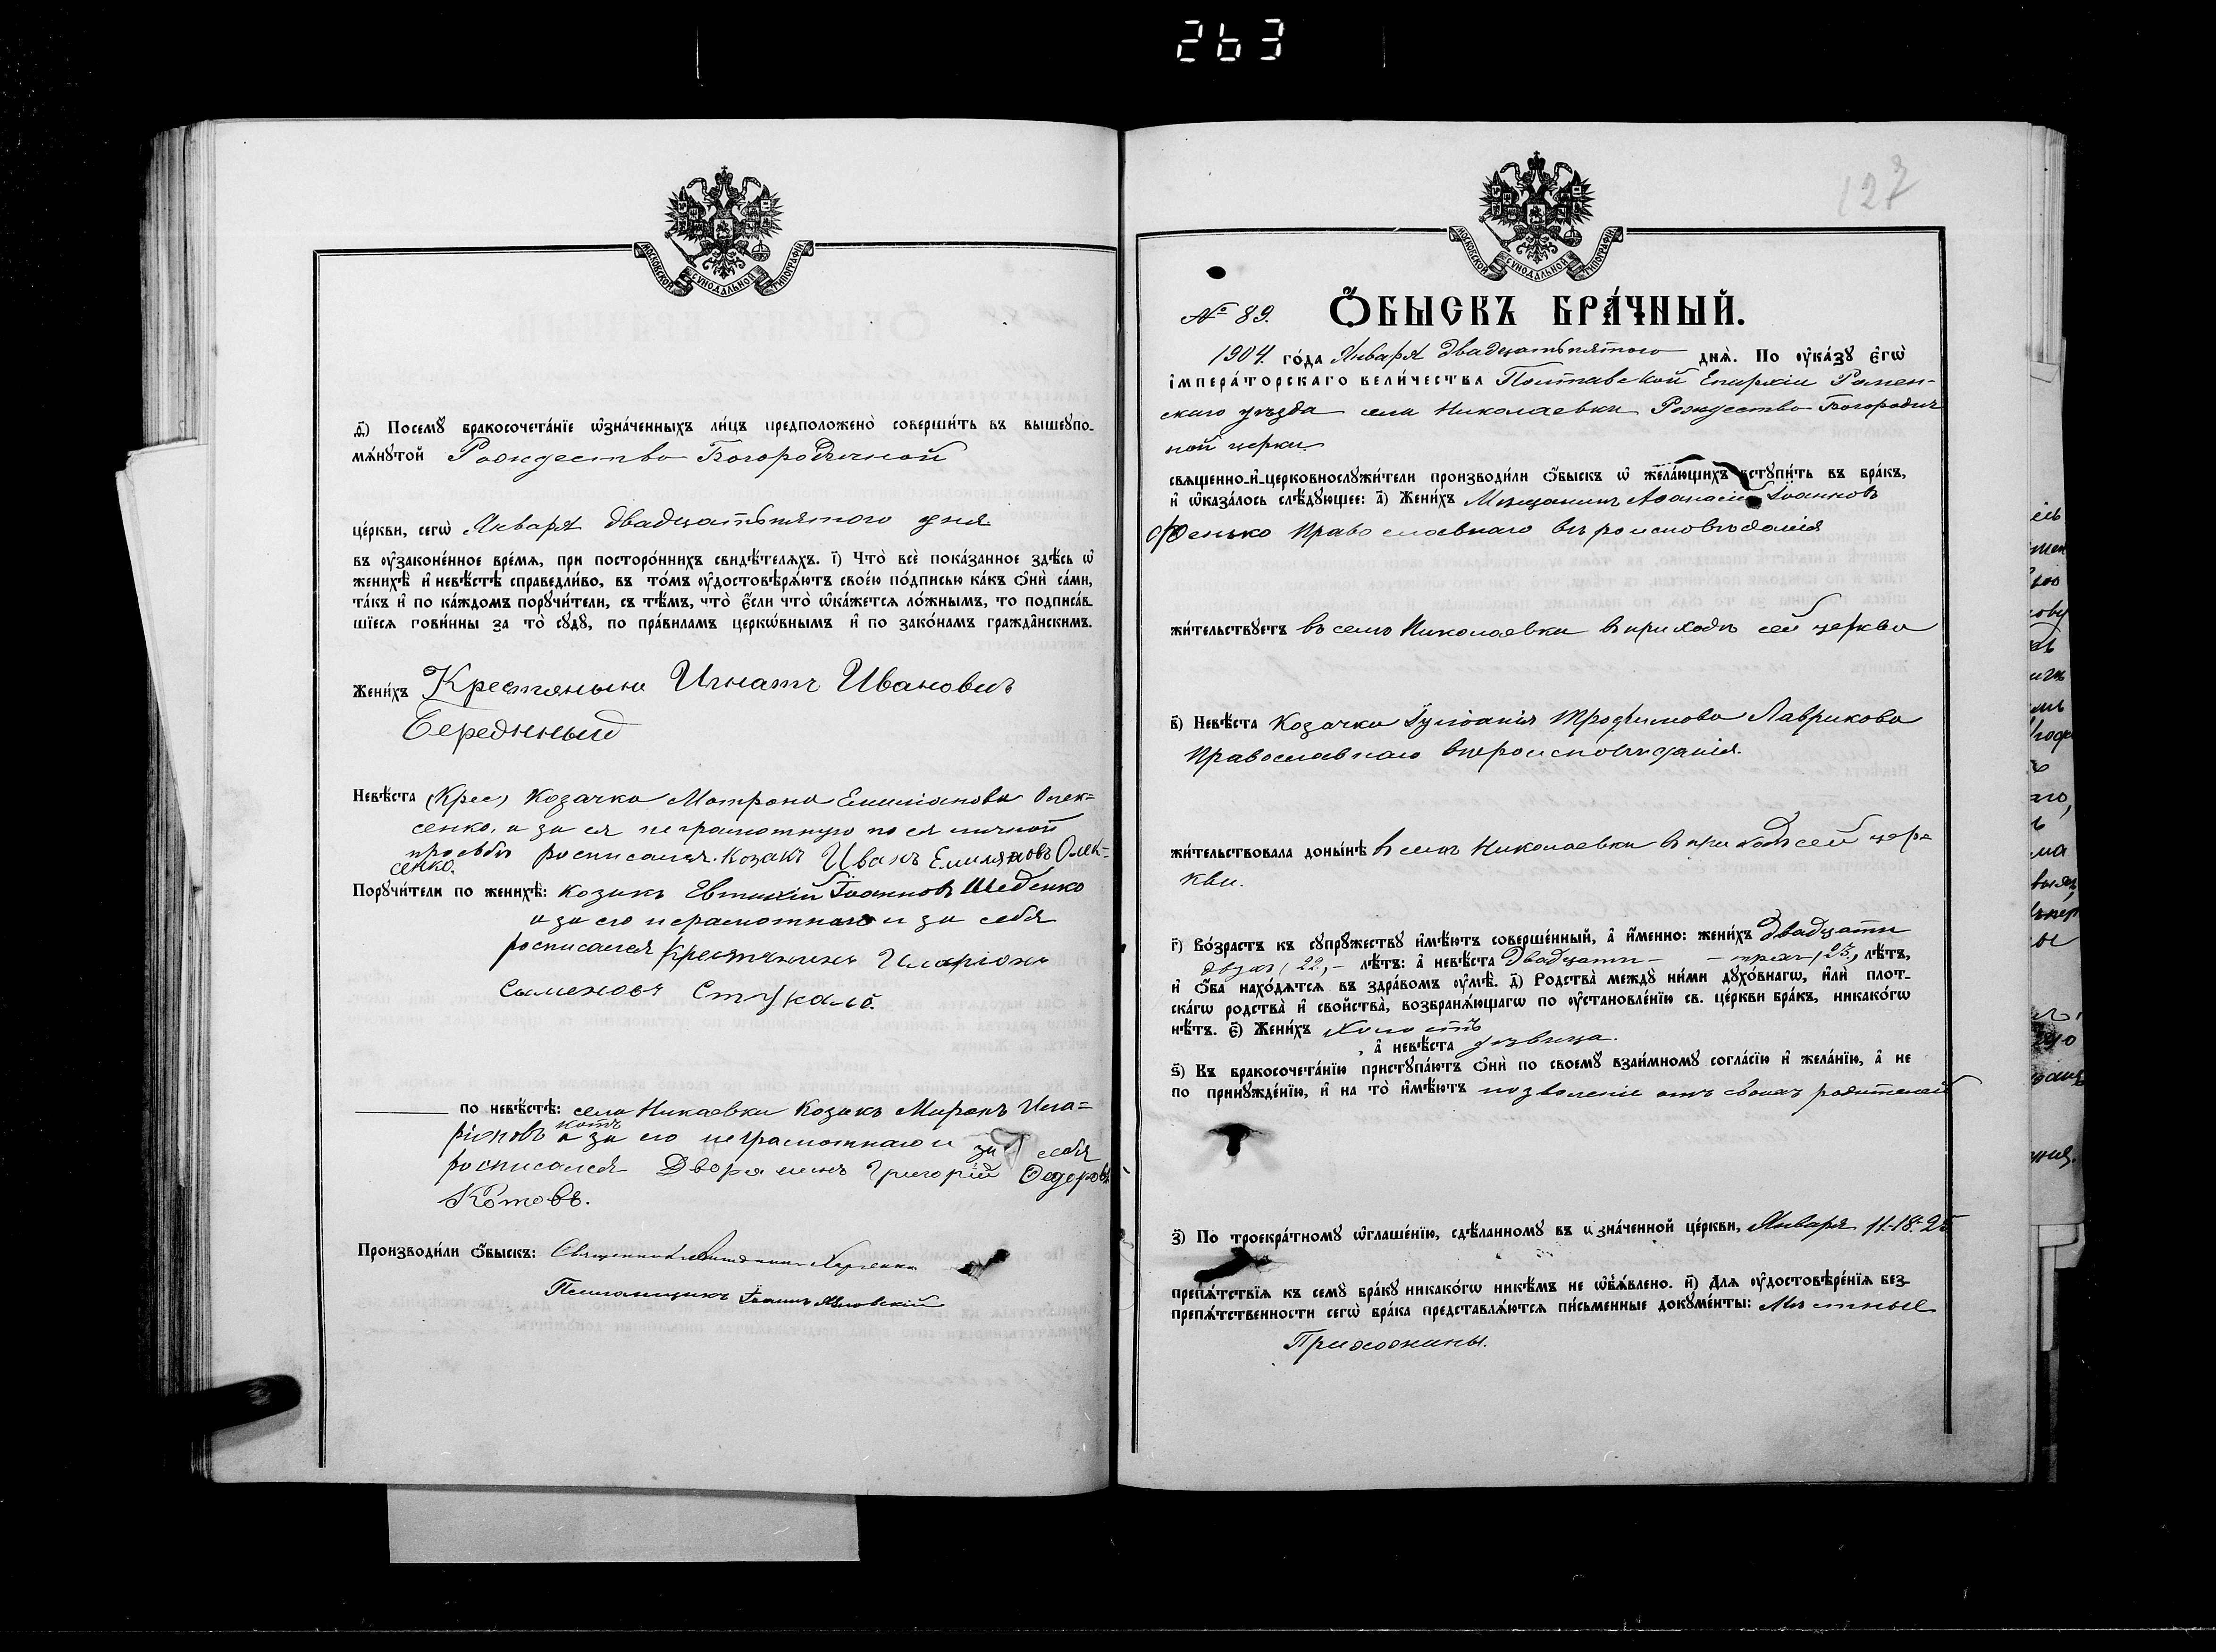 263
МОСКОВСКОЙ СѴНОДАЛЬНОЙ ТИПОГРАФІИ
д҃і) Посемꙋ̀ бракосочета́нїе ѡ҆зна́ченныхъ ли́цъ предположено̀ соверши́ть въ вышеꙋпо-
мѧ́нꙋтой Рождество-Богородичной
це́ркви, сегѡ̀ Января двадцатьпятого дня
въ ᲂу҆законе́нное вре́мѧ, при посторо́ннихъ свидѣ́телѧхъ. і҃) Что̀ всѐ пока́занное здѣ́сь ѡ҆
женихѣ̀ и҆ невѣ́стѣ справедли́во, въ то́мъ ᲂу҆достовѣрѧ́ютъ свое́ю по́дписью ка́къ ѻ҆нѝ са́ми,
та́къ и҆ по ка́ждомъ порꙋчи́тели, съ тѣ́мъ, что̀ є҆́сли что̀ ѡ҆ка́жетсѧ ло́жнымъ, то подписа́в-
шїесѧ пови́нны за то̀ сꙋдꙋ̀, по пра́виламъ церкѡ́внымъ и҆ по зако́намъ гражда́нскимъ.
Жени́хъ Крестяныно Игнатъ Ивановичъ
Середный
Невѣ́ста (Крес) Козачка Матрона Емилианова Олек=
сенко, а за ея неграмотную по ея личной
просьбѣ росписался Козакъ Иванъ Емиляновъ Олек=
сенко.
Порꙋчи́тели по женихѣ̀: Козакъ Евтихій Іоанновъ Шебенко
а за его неграмотнаго и за себя
росписался Крестянинъ Иларіонъ
Сыменовъ Стукало.
по невѣ́стѣ: села Никаевки Козакъ Миронъ Ила=
ріоновъ Котъ а за его неграмотнаго и за себя
росписался Дворянинъ Григорій Федоровъ
Котовъ.
Производи́ли ѻ҆́быскъ: Священникъ
Псаломщикъ Іоаннъ
127
МОСКОВСКОЙ СѴНОДАЛЬНОЙ ТИПОГРАФІИ
№ 89. Ѻ҆́БЫСКЪ БРА́ЧНЫЙ.
1904. го́да Января двадцатьпятого днѧ̀. По ᲂу҆ка́зꙋ є҆гѡ̀
і҆мпера́торскаго вели́чества Полтавской Епархіи Ромен-
скаго уѣзда села Николаевки Рождество-Богородич
ной церкви
свѧщенно-и҆-церковнослꙋжи́тели производи́ли ѻ҆́быскъ ѡ҆ жела́ющихъ встꙋпи́ть въ бра́къ,
и҆ ѡ҆каза́лось слѣ́дꙋющее: а҃) Жени́хъ Мещанинъ Афанасій Іоанновъ
Фенько Православнаго вѣроисповѣданія
жи́тельствꙋетъ въ селѣ Николаевки въ приходѣ сей церкви
в҃) Невѣ́ста Козачка Іуліанія Трофимова Лаврикова
Православнаго вѣроисповѣданія.
жи́тельствовала доны́нѣ въ селѣ Николаевки въ приходѣ сей цер=
кви.
г҃) Во́зрастъ къ сꙋпрꙋ́жествꙋ и҆мѣ́ютъ соверше́нный, а҆ и҆́менно: жени́хъ двадцати
двухъ (22,- лѣ́тъ: а҆ невѣ́ста двадцати - - трехъ (23,) лѣ́тъ,
и҆ ѻ҆́ба нахо́дѧтсѧ въ здра́вомъ ᲂу҆мѣ̀. д҃) Родства̀ междꙋ̀ ни́ми дꙋхо́внагѡ, и҆лѝ плот-
ска́гѡ родства̀ и҆ сво́йства, возбранѧ́ющагѡ по ᲂу҆становле́нїю св. це́ркви бра́къ, никако́гѡ
нѣ́тъ. є҃) Жени́хъ холостъ
, а҆ невѣ́ста дѣвица.
ѕ҃) Къ бракосочета́нїю пристꙋпа́ютъ ѻ҆нѝ по своемꙋ̀ взаи́мномꙋ согла́сїю и҆ жела́нїю, а҆ не
по принꙋжде́нїю, и҆ на то̀ и҆мѣ́ютъ позволеніе отъ своихъ родителей
з҃) По троекра́тномꙋ ѡ҆глаше́нїю, сдѣ́ланномꙋ въ означенной це́ркви, Января 11.-18.-25
препѧ́тствїѧ къ семꙋ̀ бра́кꙋ никако́гѡ никѣ́мъ не ѡ҆б̾ѧ́влено. и҃) Длѧ ᲂу҆достовѣ́ренїѧ без-
препѧ́тственности сегѡ̀ бра́ка представлѧ́ютсѧ пи́сьменные докꙋме́нты: Мѣстные
Прихожаны.